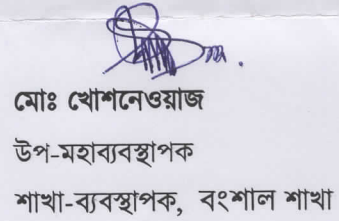 মোঃ খোশনেওয়াজ
উপ-মহাব্যবস্থাপক
শাখা-ব্যবস্থাপক, বংশাল শাখা